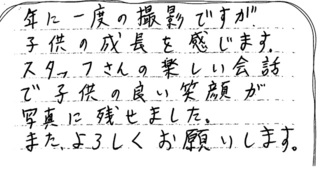 年に一度の撮影ですが、
子供の成長を感じます。
スタッフさんの楽しい会話
で子供の良い笑顔が
写真に残せました。
また、よろしくお願いします。